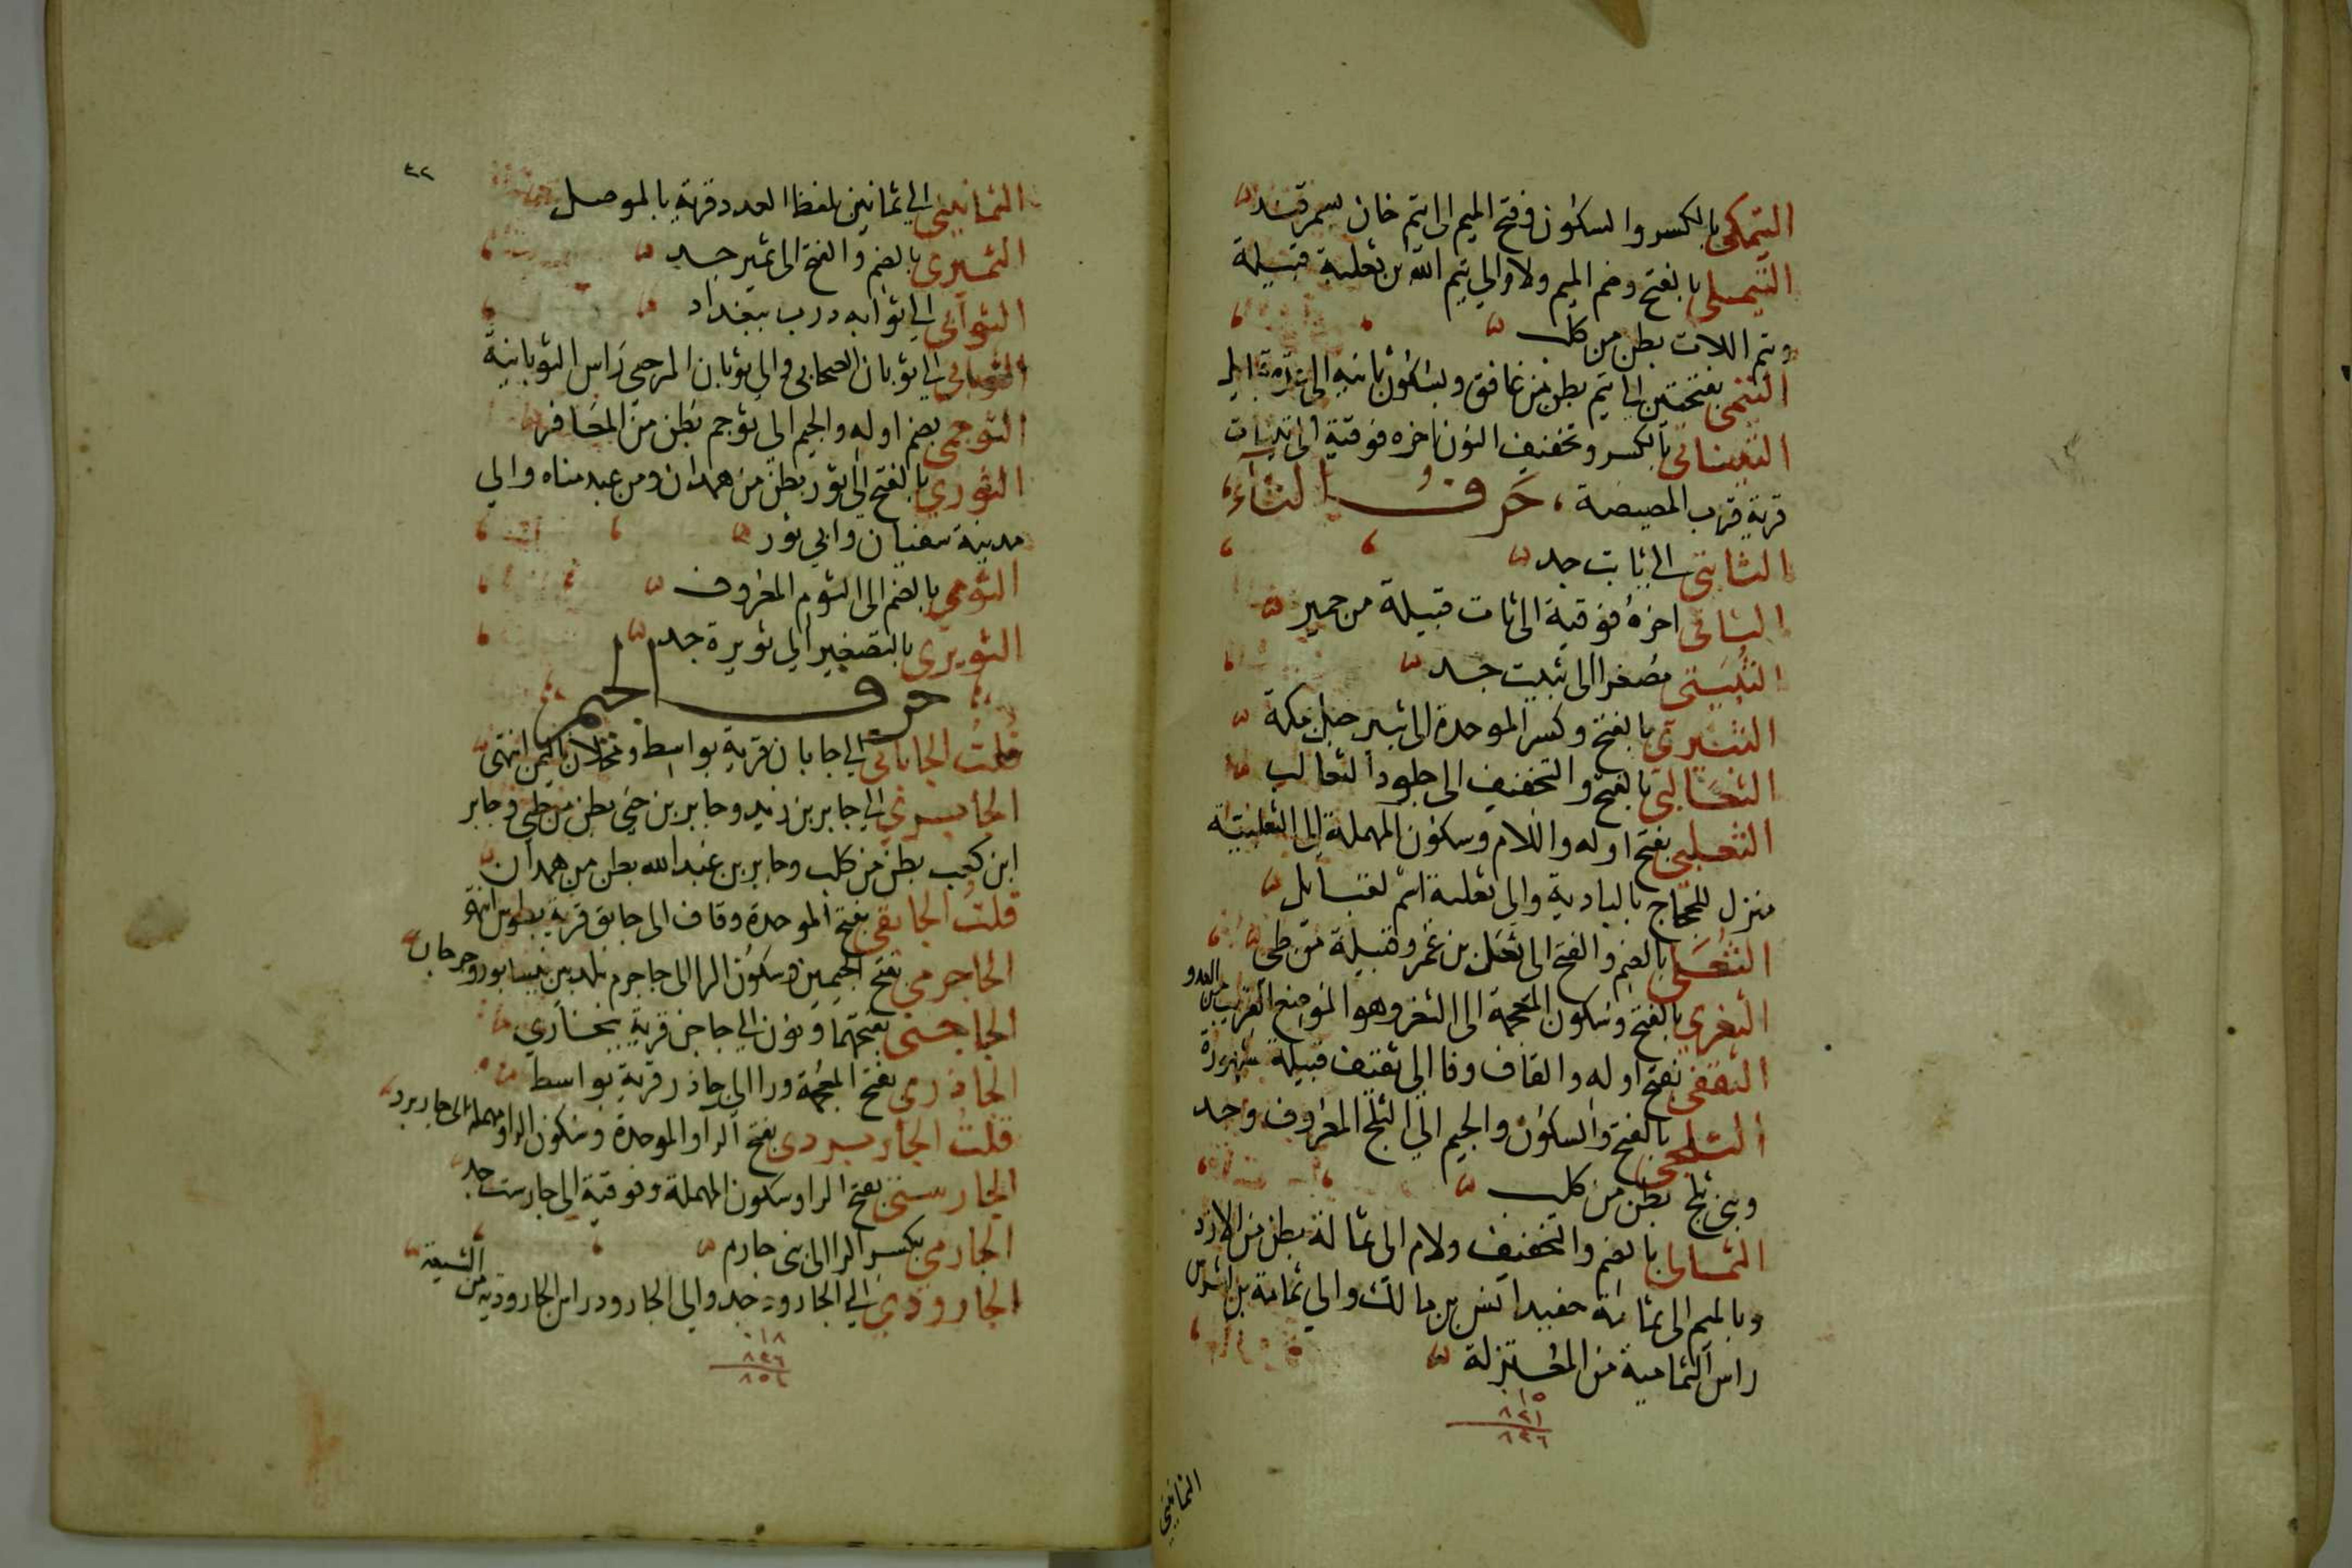 التيمكي بالكسر والسكون وفتح الميم الى تيم خان بسمرقند
التيملي بالفتح وضم الميم ولام والي تيم الله بن ثعلبة قبيلة
وتيم اللات بطن من كلب
التيمي بفتحتين الى تيم بطن من غافق وبسكون ثانيه الى
التيناتي بالكسر وتخفيف النون اخره فوقية الى تينات
قرية قرب المصيصة، حَرفُ الثاء
الثابتي الى ثابت جد
الثاتي اخرهُ فوقية الى ثات قبيلة من حمير
الثبيتي مصغرا الى ثبيت جد
الثبيري بالفتح وكسر الموحدة الى ثبير جبل بمكة
الثعالبي بالفتح والتخفيف الى جلود الثعالب
الثعلبي بفتح اوله واللام وسكون المهملة الى الثعلبية
منزل للحجاج بالبادية والى ثعلبة اسم لقبايل
الثعلي بالضم والفتح الى ثعل بن عمرو قبيلة من طي
الثغري بالفتح وسكون المعجمة الى الثغر وهو الموضع القريب من العدو
الثقفي بفتح اوله والقاف وفا الى ثقيف قبيلة شهيرة
الثلجي بالفتح والسكون والجيم الى الثلج المعروف وجد
وبني ثلج بطن من كلب
الثمالي بالضم والتخفيف ولام الى ثمالة بطن من الازد
وبالميم الى ثمامة حفيد انس بن مالك والي ثمامة بن اشرس
راس الثمامية من المعتزلة
١٥
٨٢١
٨٣٦
الثمانيني
٤٢
الثمانيني الي ثمانين بلفظ العدد قرية بالموصل
الثميري بالضم والفتح الى ثمير جد
الثوابي الي ثوابه درب ببغداد
الثوباني الي ثوبان الصحابي والي ثوبان المرجي راس الثوبانية
الثوجمي بضم اوله والجيم الي ثوجم بطن من المعافر
الثوري بالفتح الي ثور بطن من همدان ومن عبد مناه والي
مدينة سفيان وابي ثور
الثومي بالضم الى الثوم المعروف
الثويري بالتصغير الي ثويرة جد
حرف الجيم
قلتُ الجاباني الي جابان قرية بواسط ومخلاف باليمن انتهى
الجابري الي جابر بن زيد وجابر بن حي بطن من طي وجابر
ابن كعب بطن من كلب وجابر بن عبد الله بطن من همدان
قلتُ الجابقي بفتح الموحدة وقاف الى جابق قرية بطوس انتهى
الجاجرمي بفتح الجيمين وسكون الرا الى جاجرم بلد بين نيسابور وجرجان
الجاجني بفتحهما ونون الي جاجن قرية ببخاري
الجاذري بفتح المعجمة ورا الي جاذر قرية بواسط
قلتُ الجاربردي بفتح الرا والموحدة وسكون الرا ومهملة الى جاربرد
الجارستي بفتح الرا وسكون المهملة وفوقية الى جارست جد
الجارمي بكسر الرا الى بني جارم
الجارودي الي الجارود جد والي الجارود راس الجارودية من الشيعة
١٨
٨٣٦
٨٥٤